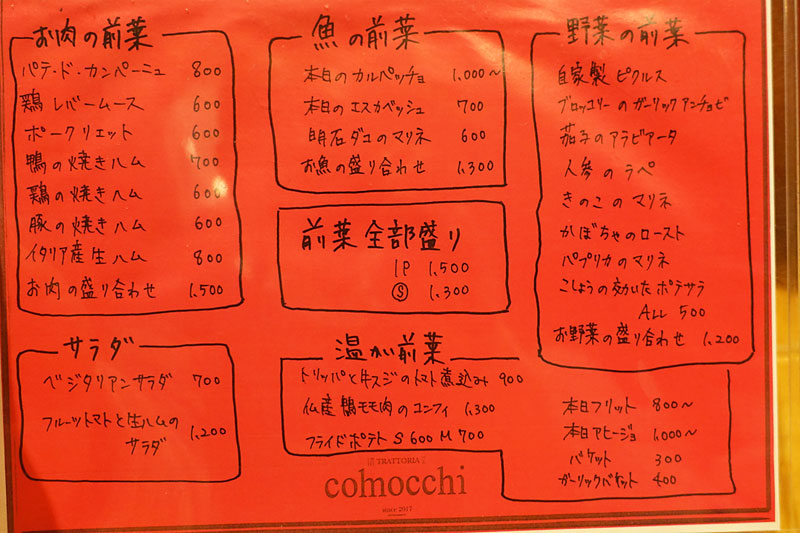 お肉の前菜
パテ・ド・カンペーニュ 800
鶏レバームース 600
ポークリエット 600
鴨の焼きハム 700
鶏の焼きハム 600
豚の焼きハム 600
イタリア産生ハム 800
お肉の盛り合わせ 1,500
サラダ
ベジタリアンサラダ 700
フルーツトマトと生ハムの
サラダ 1,200
魚の前菜
本日のカルパッチョ 1,000〜
本日のエスカベッシュ 700
明石ダコのマリネ 600
お魚の盛り合わせ 1,300
前菜全部盛り
1P 1,500
Ⓢ 1,300
温かい前菜
トリッパと牛スジのトマト煮込み 900
仏産鴨モモ肉のコンフィ 1,300
フライドポテト S 600 M 700
野菜の前菜
自家製ピクルス
ブロッコリーのガーリックアンチョビ
茄子のアラビアータ
人参のラペ
きのこのマリネ
かぼちゃのロースト
パプリカのマリネ
こしょうの効いたポテサラ
ALL 500
お野菜の盛り合わせ 1,200
本日フリット 800〜
本日アヒージョ 1,000〜
バケット 300
ガーリックバケット 400
TRATTORIA
colnocchi
since 2017